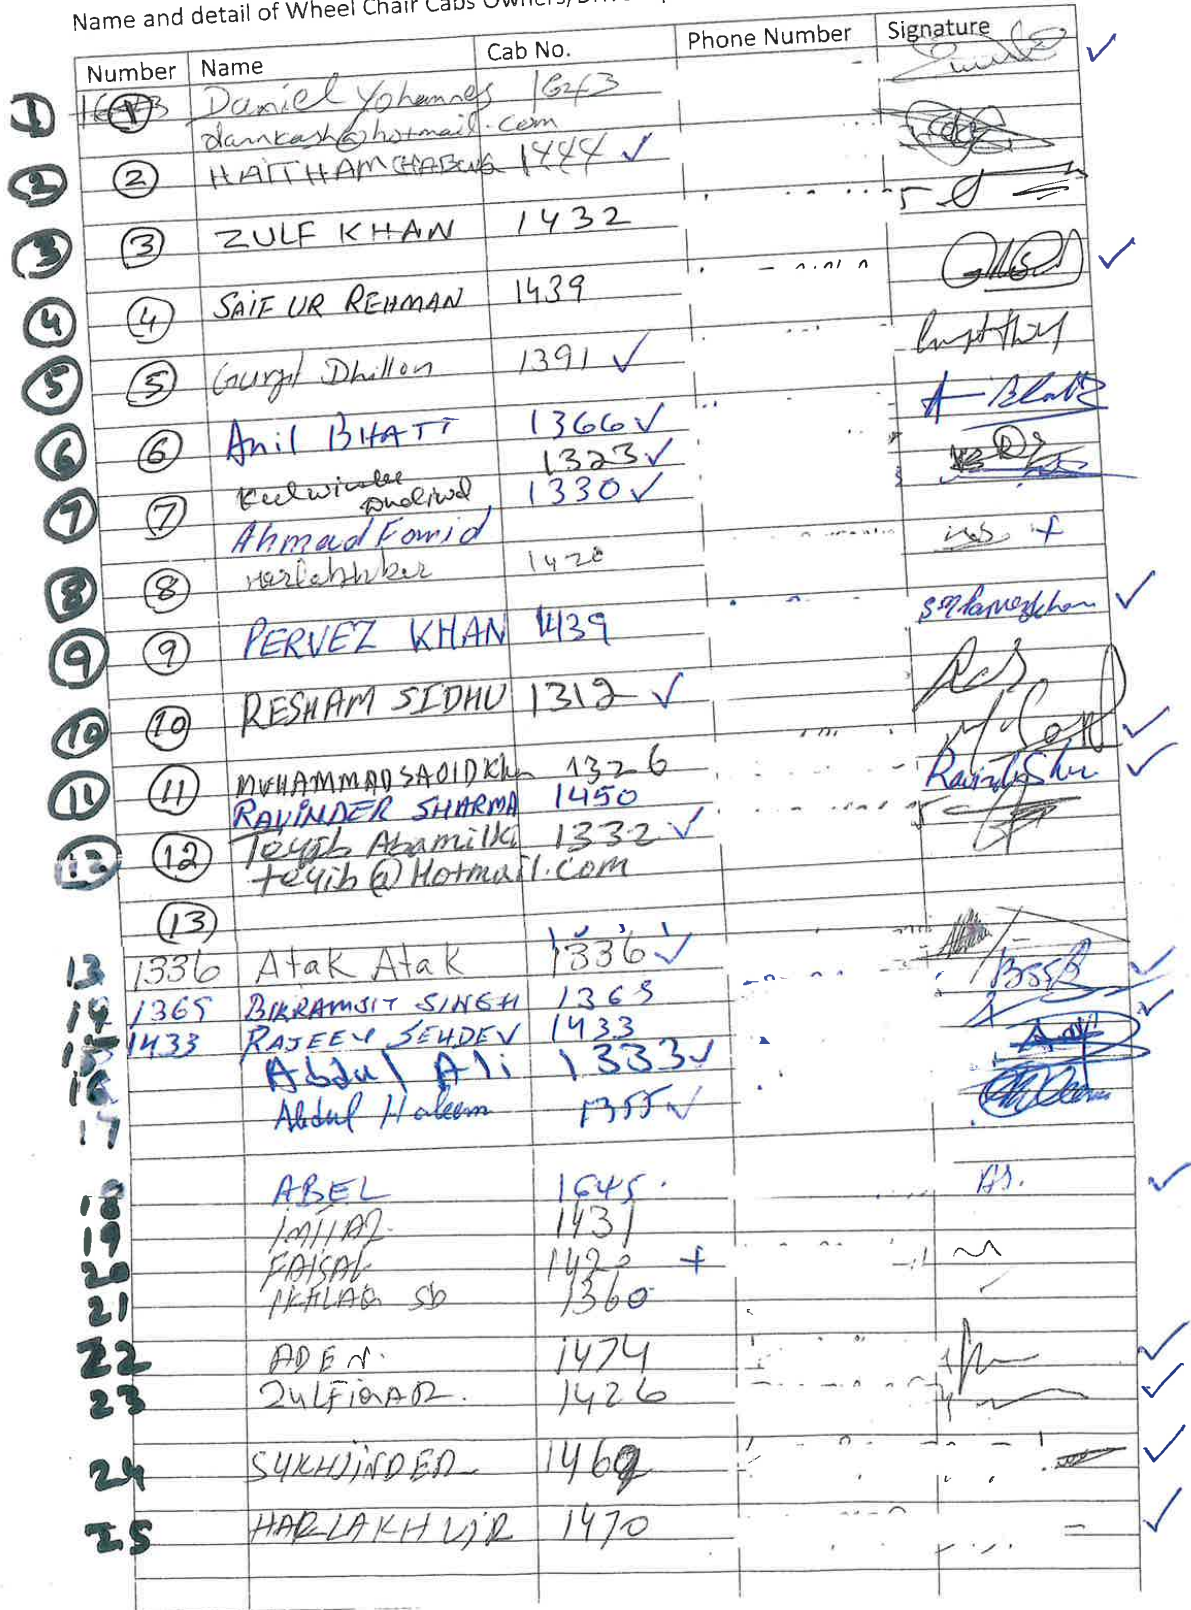 Name and detail of Wheel Chair Cabs
Number Name Cab No. Phone Number Signature
1 1 Daniel Yohannes 1643
dannkash@hotmail.com
2 2 HAITHAM 1444 ✓
3 3 ZULF KHAN 1432
4 4 SAIF UR REHMAN 1439
5 5 Dhillon 1391 ✓
6 6 Anil BHATT 1366 ✓ A-Bhatt
1323 ✓
7 7 Kulwinder
Dhaliwal 1330 ✓
Ahmad Fawid
8 8 1420 +
9 9 PERVEZ KHAN 1439
10 10 RESHAM SIDHU 1312 ✓
11 11 MUHAMMAD SAOID Khn 1326
RAVINDER SHARMA 1450
12 12 Teyib Abamilki 1332 ✓
teyib@Hotmail.com
13
13 1336 Atak Atak 1336 ✓
14 1365 BIKRAMJIT SINGH 1365
15 1433 RAJEEV SEHDEV 1433
16 Abdul Ali 1333 ✓
17 Abdul Hakeem 1355 ✓
18 ABEL 1645.
19 IMTIAZ 1431
20 FAISAL +
21 IKHLAQ Sb 1360
22 ADEN. 1474
23 ZULFIQAR. 1426
24 SUKHJINDER
25 HARLAKHVIR 1470